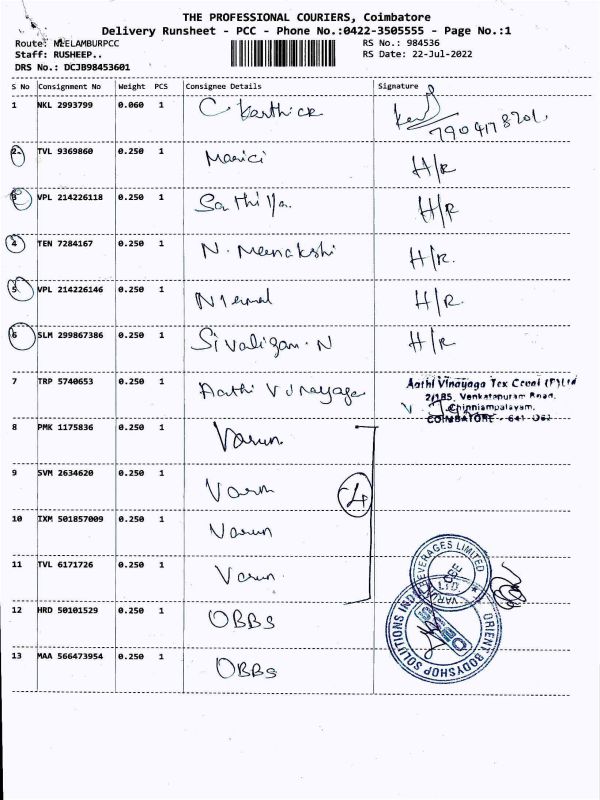 THE PROFESSIONAL COURIERS, Coimbatore
Delivery Runsheet - PCC - Phone No.:0422-3505555 - Page No.:1
Route: NEELAMBURPCC RS No.: 984536
Staff: RUSHEEP.. RS Date: 22-Jul-2022
DRS No.: DCJB98453601
S No Consignment No Weight PCS Consignee Details Signature
1 NKL 2993799 0.060 1 C Karthick
7904178201
2 TVL 9369860 0.250 1 Marici H/R
3 VPL 214226118 0.250 1 Sathiya. H/R
4 TEN 7284167 0.250 1 N. Meenakshi H/R.
5 VPL 214226146 0.250 1 Nirmal H/R
6 SLM 299867386 0.250 1 Sivaligam. N H/R
7 TRP 5740653 0.250 1 Aathi Vinayaga Aathi Vinayaga Tex Conai (P) Ltd
2/185, Venkatapuram Road,
Chinniampalayam,
COIMBATORE - 641 062
8 PMK 1175836 0.250 1 Varun
9 SVM 2634620 0.250 1 Varun 4
10 IXM 501857009 0.250 1 Varun
11 TVL 6171726 0.250 1 Varun.
VARUN BEVERAGES LIMITED
12 HRD 50101529 0.250 1 OBBS
ORIENT BODYSHOP SOLUTIONS IND
13 MAA 566473954 0.250 1 OBBS